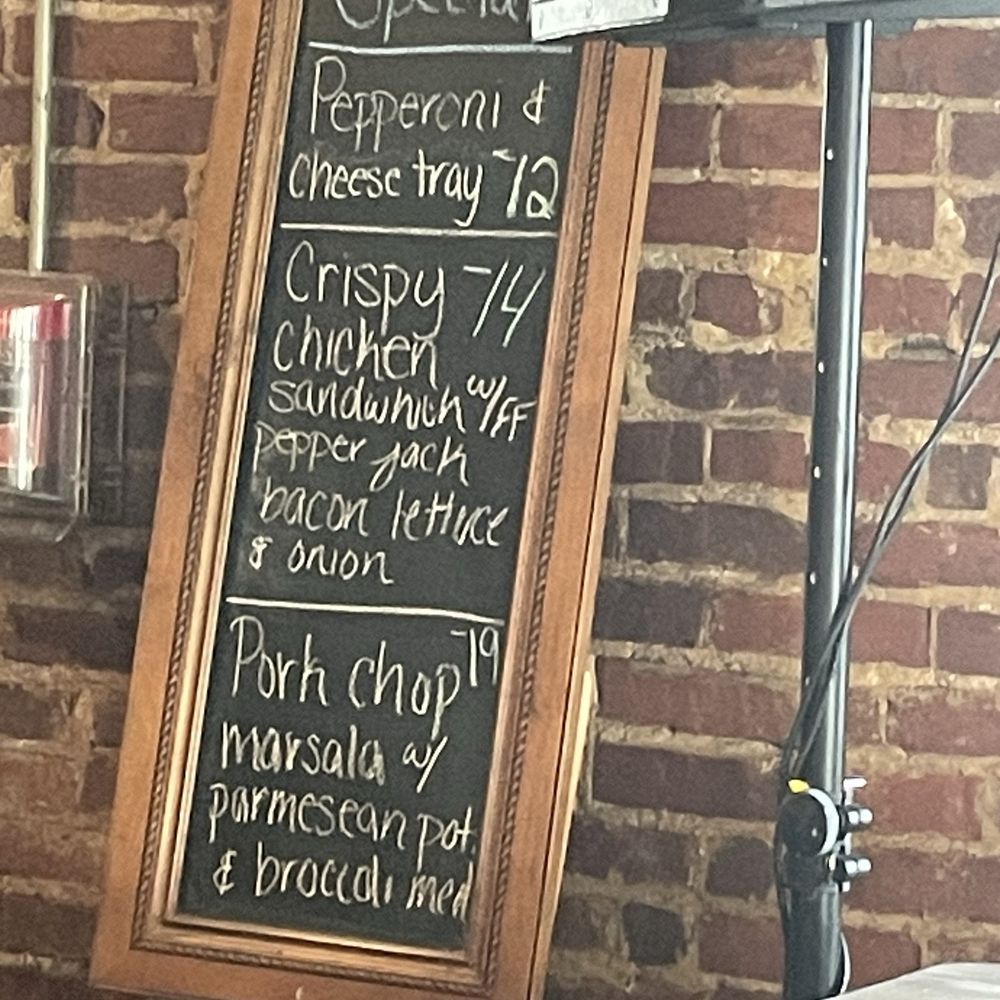 Special
Pepperoni &
cheese tray -12
Crispy -14
chicken
sandwhich w/FF
pepper jack
bacon lettuce
& onion
Pork chop -19
marsala w/
parmesean pot.
& broccoli med